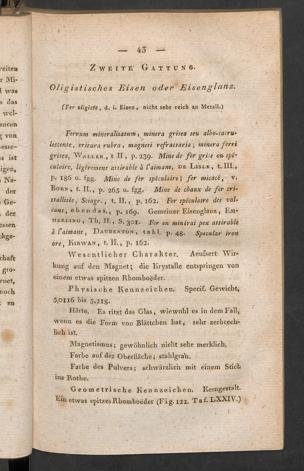 — 43 —
ZWEITE GATTUNG.
Oligistisches Eisen oder Eisenglanz.
(Fer oligiste, d. i. Eisen, nicht sehr reich an Metall.)
Ferrum mineralisatum, minera grisea seu albo-caeru-
lescente, tritura rubra, magneti refractaria; minera ferri
grisea, WALLER, t II, p. 239. Mine de fer grise ou spé-
culaire, légèrement attirable à l'aimant, DE LISLE, t. III.,
p. 186 u. fgg. Mine de fer spéculaire; fer micacé, v.
BORN, t. II., p. 265 u. fgg. Mine de chaux de fer cri-
stallisée, Sciagr., t. II., p. 162. Fer spéculaire des vol-
cans, ebendas., p. 169. Gemeiner Eisenglanz, EM-
MERLING, Th. II., S. 301. Fer en minérai peu attirable
à l'aimant, DAUBENTON, tabl. p. 48. Specular iron
ore, KIRWAN, t. II., p. 162.
Wesentlicher Charakter. Aeussert Wir-
kung auf den Magnet; die Krystalle entspringen von
einem etwas spitzen Rhomboëder.
Physische Kennzeichen. Specif. Gewicht,
5,0116 bis 5,218.
Härte. Es ritzt das Glas, wiewohl es in dem Fall,
wenn es die Form von Blättchen hat, sehr zerbrech-
lich ist.
Magnetismus; gewöhnlich nicht sehr merklich.
Farbe auf der Oberfläche; stahlgrau.
Farbe des Pulvers; schwärzlich mit einem Stich
ins Rothe.
Geometrische Kennzeichen. Kerngestalt.
Ein etwas spitzes Rhomboëder (Fig. 122. Taf. LXXIV.)